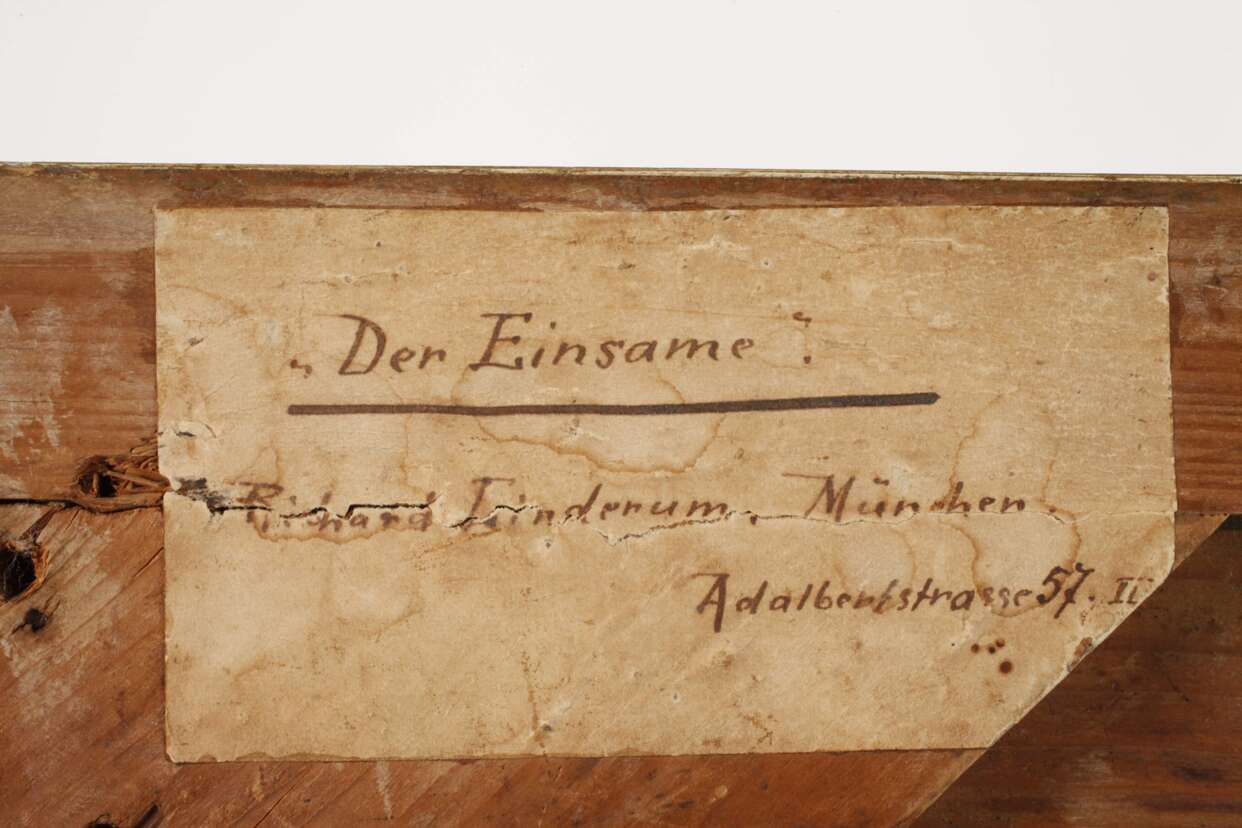 „Der Einsame“.
Richard Linderum, München.
Adalbertstrasse 57. II